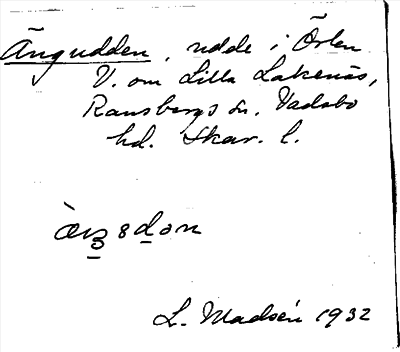 Ängudden, udde i Örlen
V. om Lilla Lakenäs,
Ransbergs sn. Vadsbo
hd. Skar. l.
L. Madsén 1932